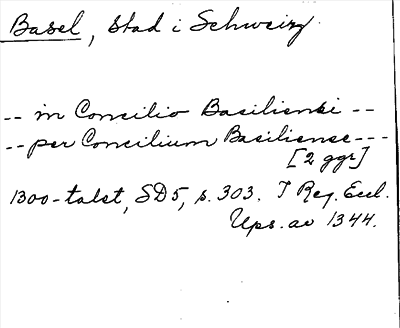 Basel, stad i Schweiz.
-- in Concilio Basiliensi --
-- per Concilium Basiliense ---
[2 ggr]
1300-talet, SD5, s. 303. I Reg. Eccl.
Ups. av 1344.